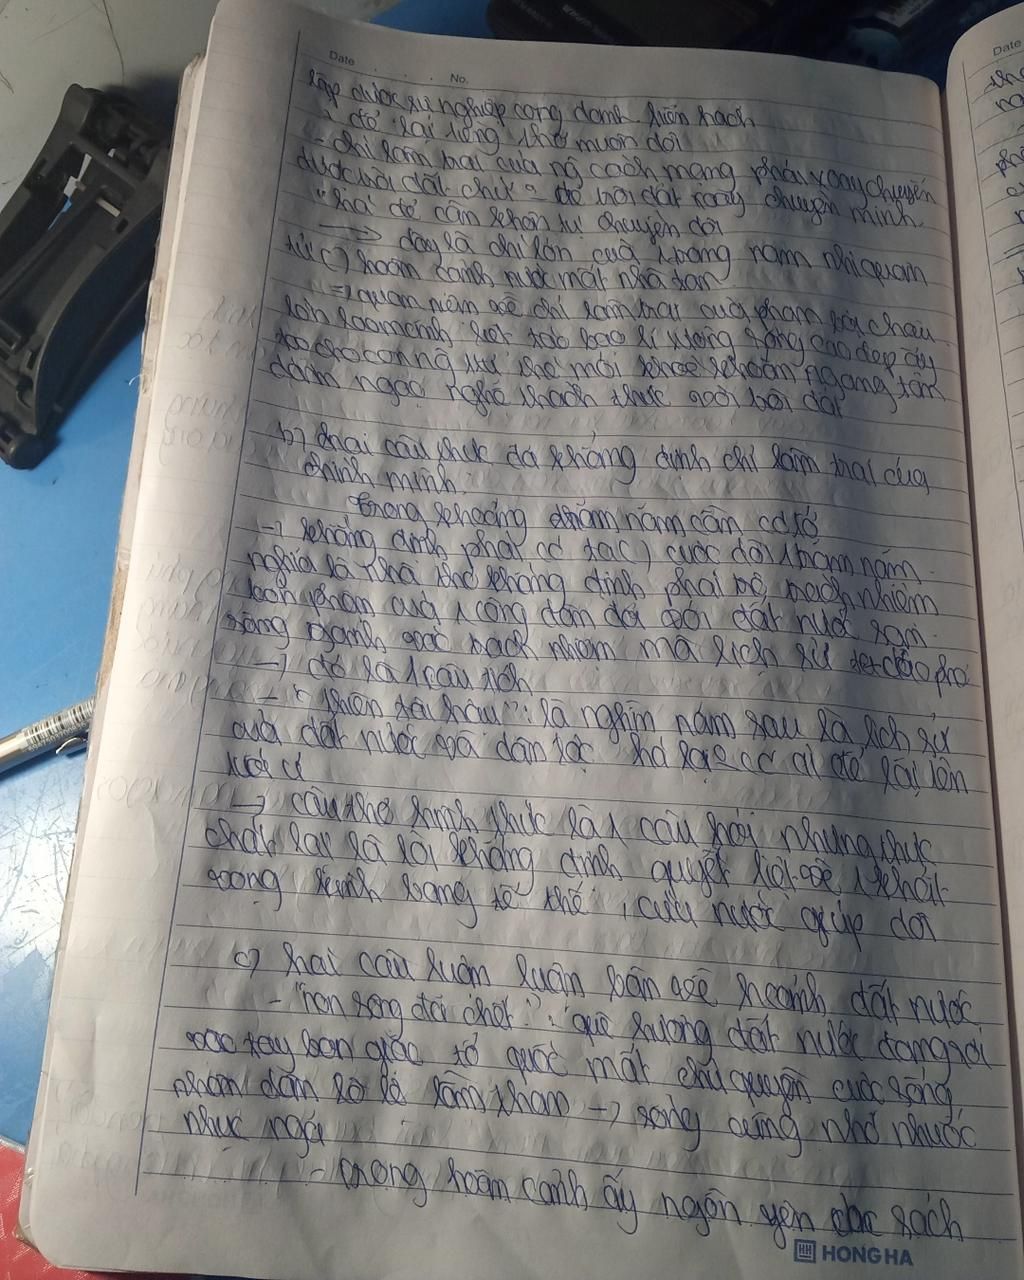 Date No.
lập được sự nghiệp công danh hiển hách
để lại tiếng thơm muôn đời
- chí làm trai của nó cách mạng phải xoay chuyển
được trời đất chứ đợi trời đất xoay chuyển mình
"há để càn khôn tự chuyển dời
→ đây là chí lớn của trang nam nhi quan
từ () hoàn cảnh nước mất nhà tan
=> quan niệm về chí làm trai của phan bội châu
lí tưởng sống cao đẹp ấy
cho con ng tư thế mới khoẻ khoắn ngang tàn
dám ngạo nghễ thách thức với trời đất
b) hai câu thực đã khẳng định chí làm trai của
chính mình:
trong khoảng trăm năm cần có tớ
→ khẳng định phải có ta () cuộc đời trăm năm
nghĩa là nhà thơ khẳng định phải trách nhiệm
bổn phận của 1 công dân đối với đất nước
gánh vác trách nhiệm mà lịch sử
→ đó là 1 câu
- "thiên tải hậu": là nghìn năm sau là lịch sử
của đất nước và dân tộc há lại có ai để lại tên
tuổi ư
→ câu thơ hình thức là 1 câu hỏi nhưng thực
chất lại là lời khẳng định quyết liệt về 1 khát
vọng kinh bang tế thế, cứu nước giúp đời
c) hai câu luận luận bàn về h cảnh đất nước
- "non sông đã chết": quê hương đất nước đang rơi
vào tay bọn giặc tổ quốc mất chủ quyền cuộc sống
nhân dân nô lệ lầm than → sống cũng nhơ nhuốc
nhục ngã
- trong hoàn cảnh ấy ngồi yên đọc sách
HONG HA
Date